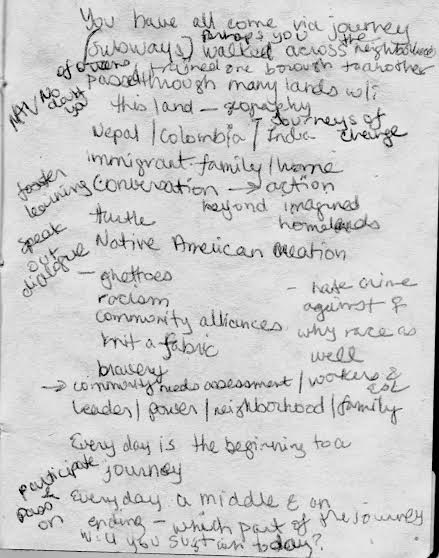 You have all come via journey
Perhaps you
(subways) walked across the neighborhood
of Queens trained one borough to another
passed through many lands w/i
NAN/No
doubt
you
this land – geography
Journeys of
Nepal / Colombia / India change
immigrant family / home
foster
learning
conversation → action
beyond imagined
homelands
turtle
speak
out
dialogue
Native American creation
– ghettoes
racism
community alliances
knit a fabric
bravery
– hate crime
against
why race as
well
→ community needs assessment / workers &
ESL
leader / power / neighborhood / family
Every day is the beginning to a
journey
participate
&
pass
on
Everyday a middle & an
ending – which part of the journey
will you sustain today?